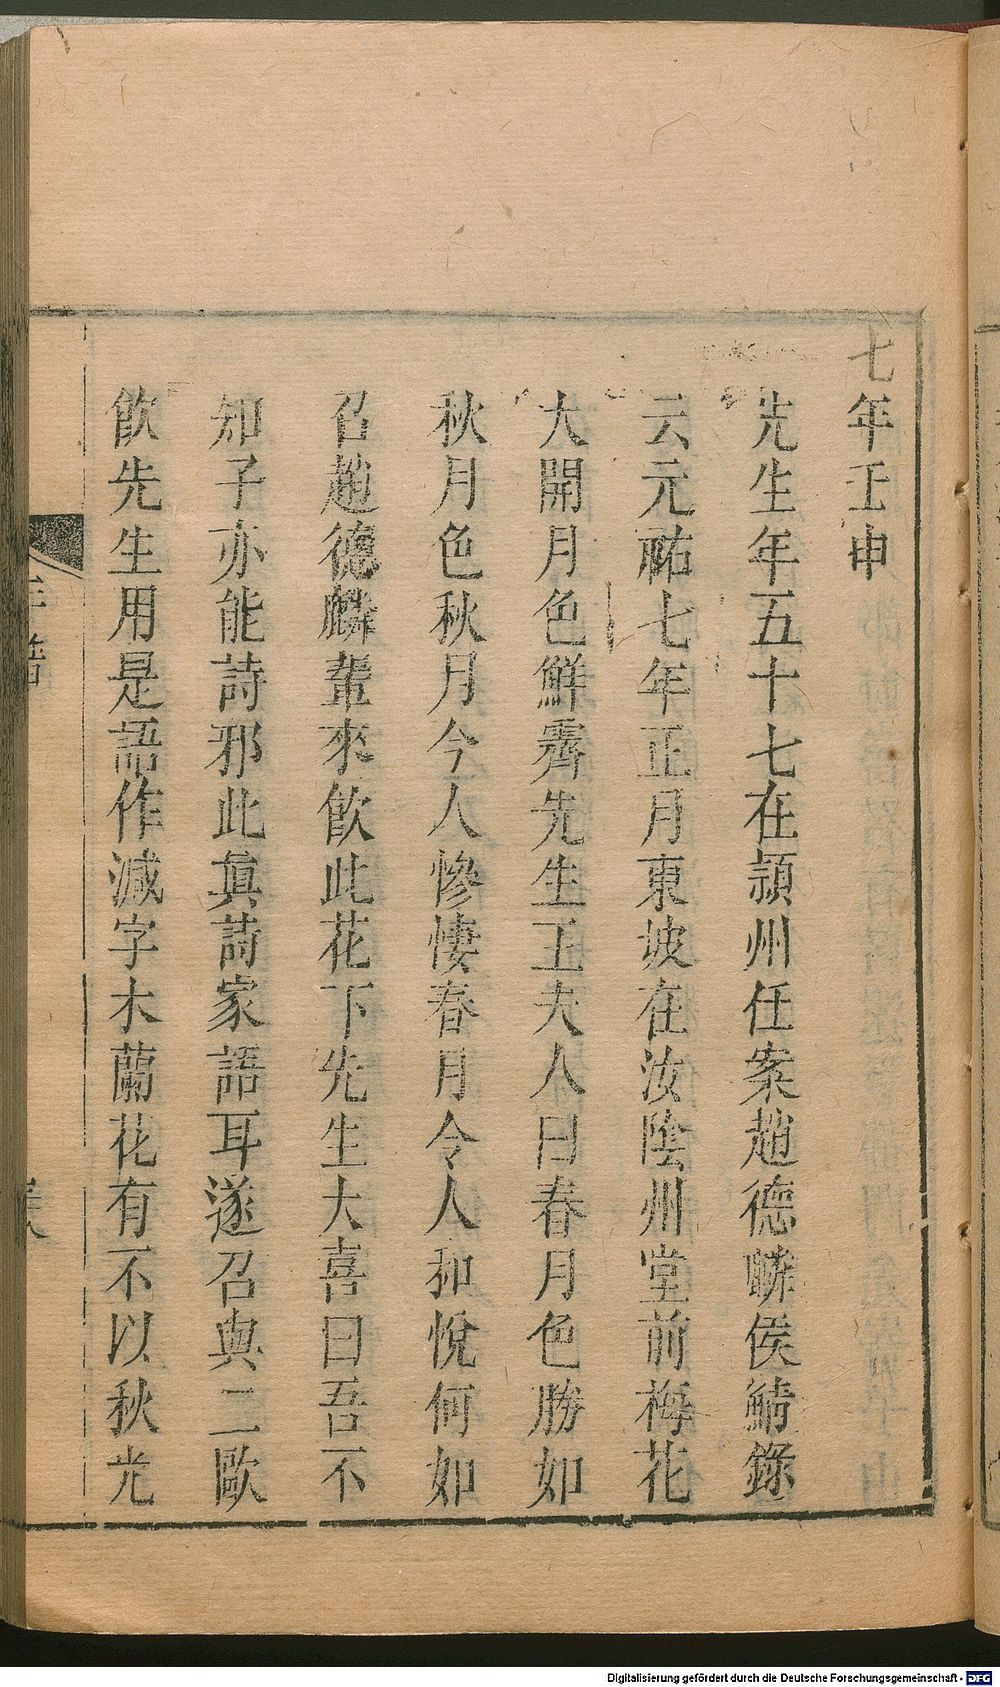 七年壬申
先生年五十七在潁州任案趙德麟侯鯖錄
云元祐七年正月東坡在汝陰州堂前梅花
大開月色鮮霽先生王夫人曰春月色勝如
秋月色秋月令人慘悽春月令人和悅何如
召趙德麟輩來飲此花下先生大喜曰吾不
知子亦能詩邪此真詩家語耳遂召與二歐
飲先生用是語作減字木蘭花有不以秋光
年譜
Digitalisierung gefördert durch die Deutsche Forschungsgemeinschaft - DFG